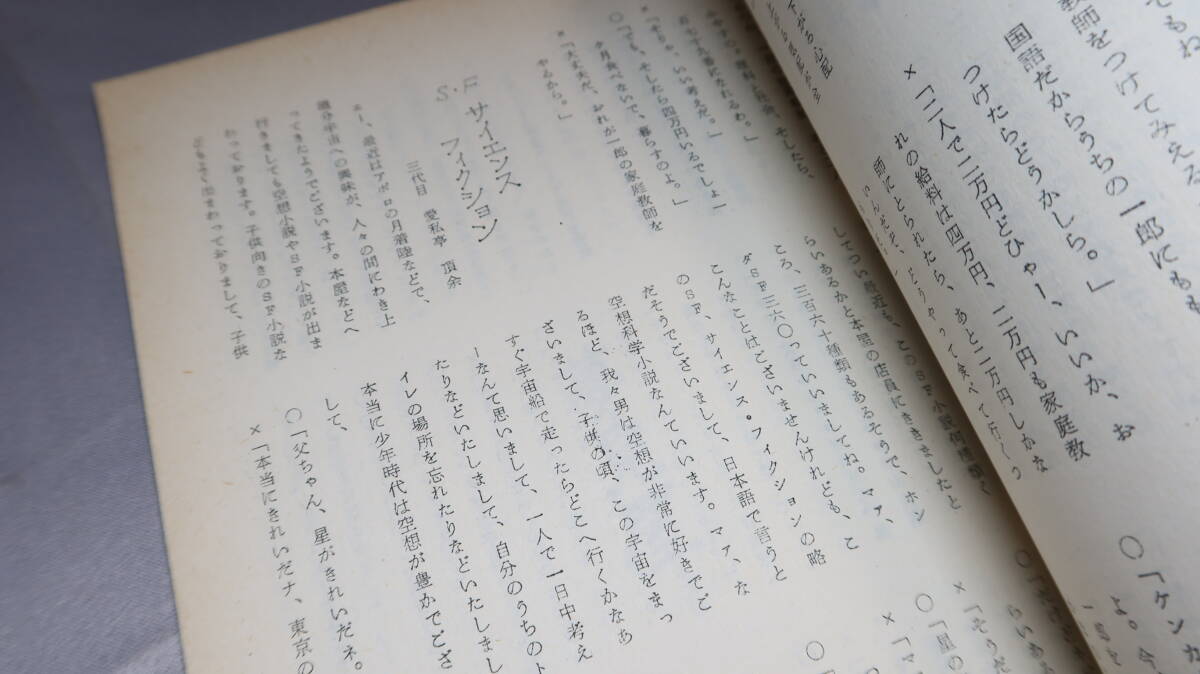 てもわ
教師をつけてみえる
国語だからうちの一郎にも
つけたらどうかしら。」
×「二人で二万円どひゃー、いいか、お
れの給料は四万円、二万円も家庭教
師にとられたら、あと二万円しかな
〇「ケンカ
よ。今
そしたら、
〇「でも、そしたら四万円いるでしょ」
夕月食べないで、暮らすのよ。」
×「大丈夫だ、おれが一郎の家庭教師を
やるから。」
S・F サイエンス
フィクション
三代目 愛私亭 頂余
ェー、最近はアポロの月着陸などで、
随分宇宙への興味が、人々の間にわき上
ってきたようでございます。本屋などへ
行きましても空想小説やSF小説が出ま
わっております。子供向きのSF小説な
どもよく出まわっておりまして、子供
してつい最近も、このSF小説何種類く
らいあるかと本屋の店員にききましたと
ころ、三百六十種類もあるそうで、ホン
ダSF三六〇っていいましてね。マァ、
こんなことはございませんけれども、こ
のSF、サイエンス・フィクションの略
だそうでございまして、日本語で言うと
空想科学小説なんていいます。マァ、な
るほど、我々男は空想が非常に好きでご
ざいまして、子供の頃、この宇宙をまっ
すぐ宇宙船で走ったらどこへ行くかなぁ
ーなんて思いまして、一人で一日中考え
たりなどいたしまして、自分のうちのト
イレの場所を忘れたりなどいたしまし
本当に少年時代は空想が豊かでござ
して、
〇「父ちゃん、星がきれいだネ。
×「本当にきれいだナ、東京の
×「そうだ
〇「星の
×「マ